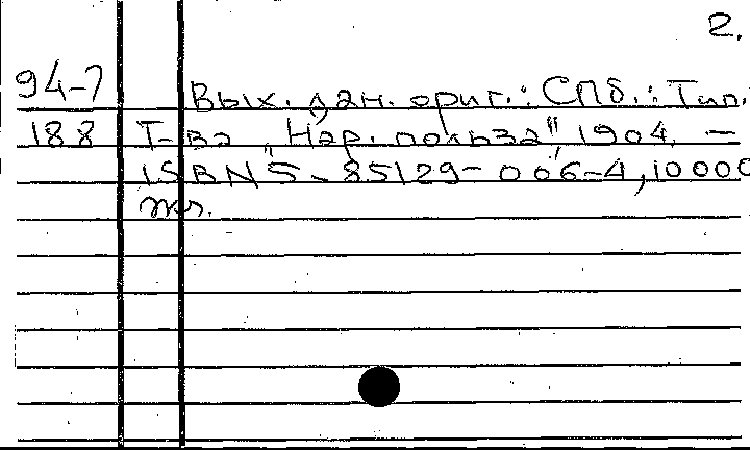 2.
94-7 Вых. дан. ориг.: СПб.: Тип.
188 Т-ва „Нар. польза", 1904. —
ISBN 5-85129-006-4, 10000
экз.